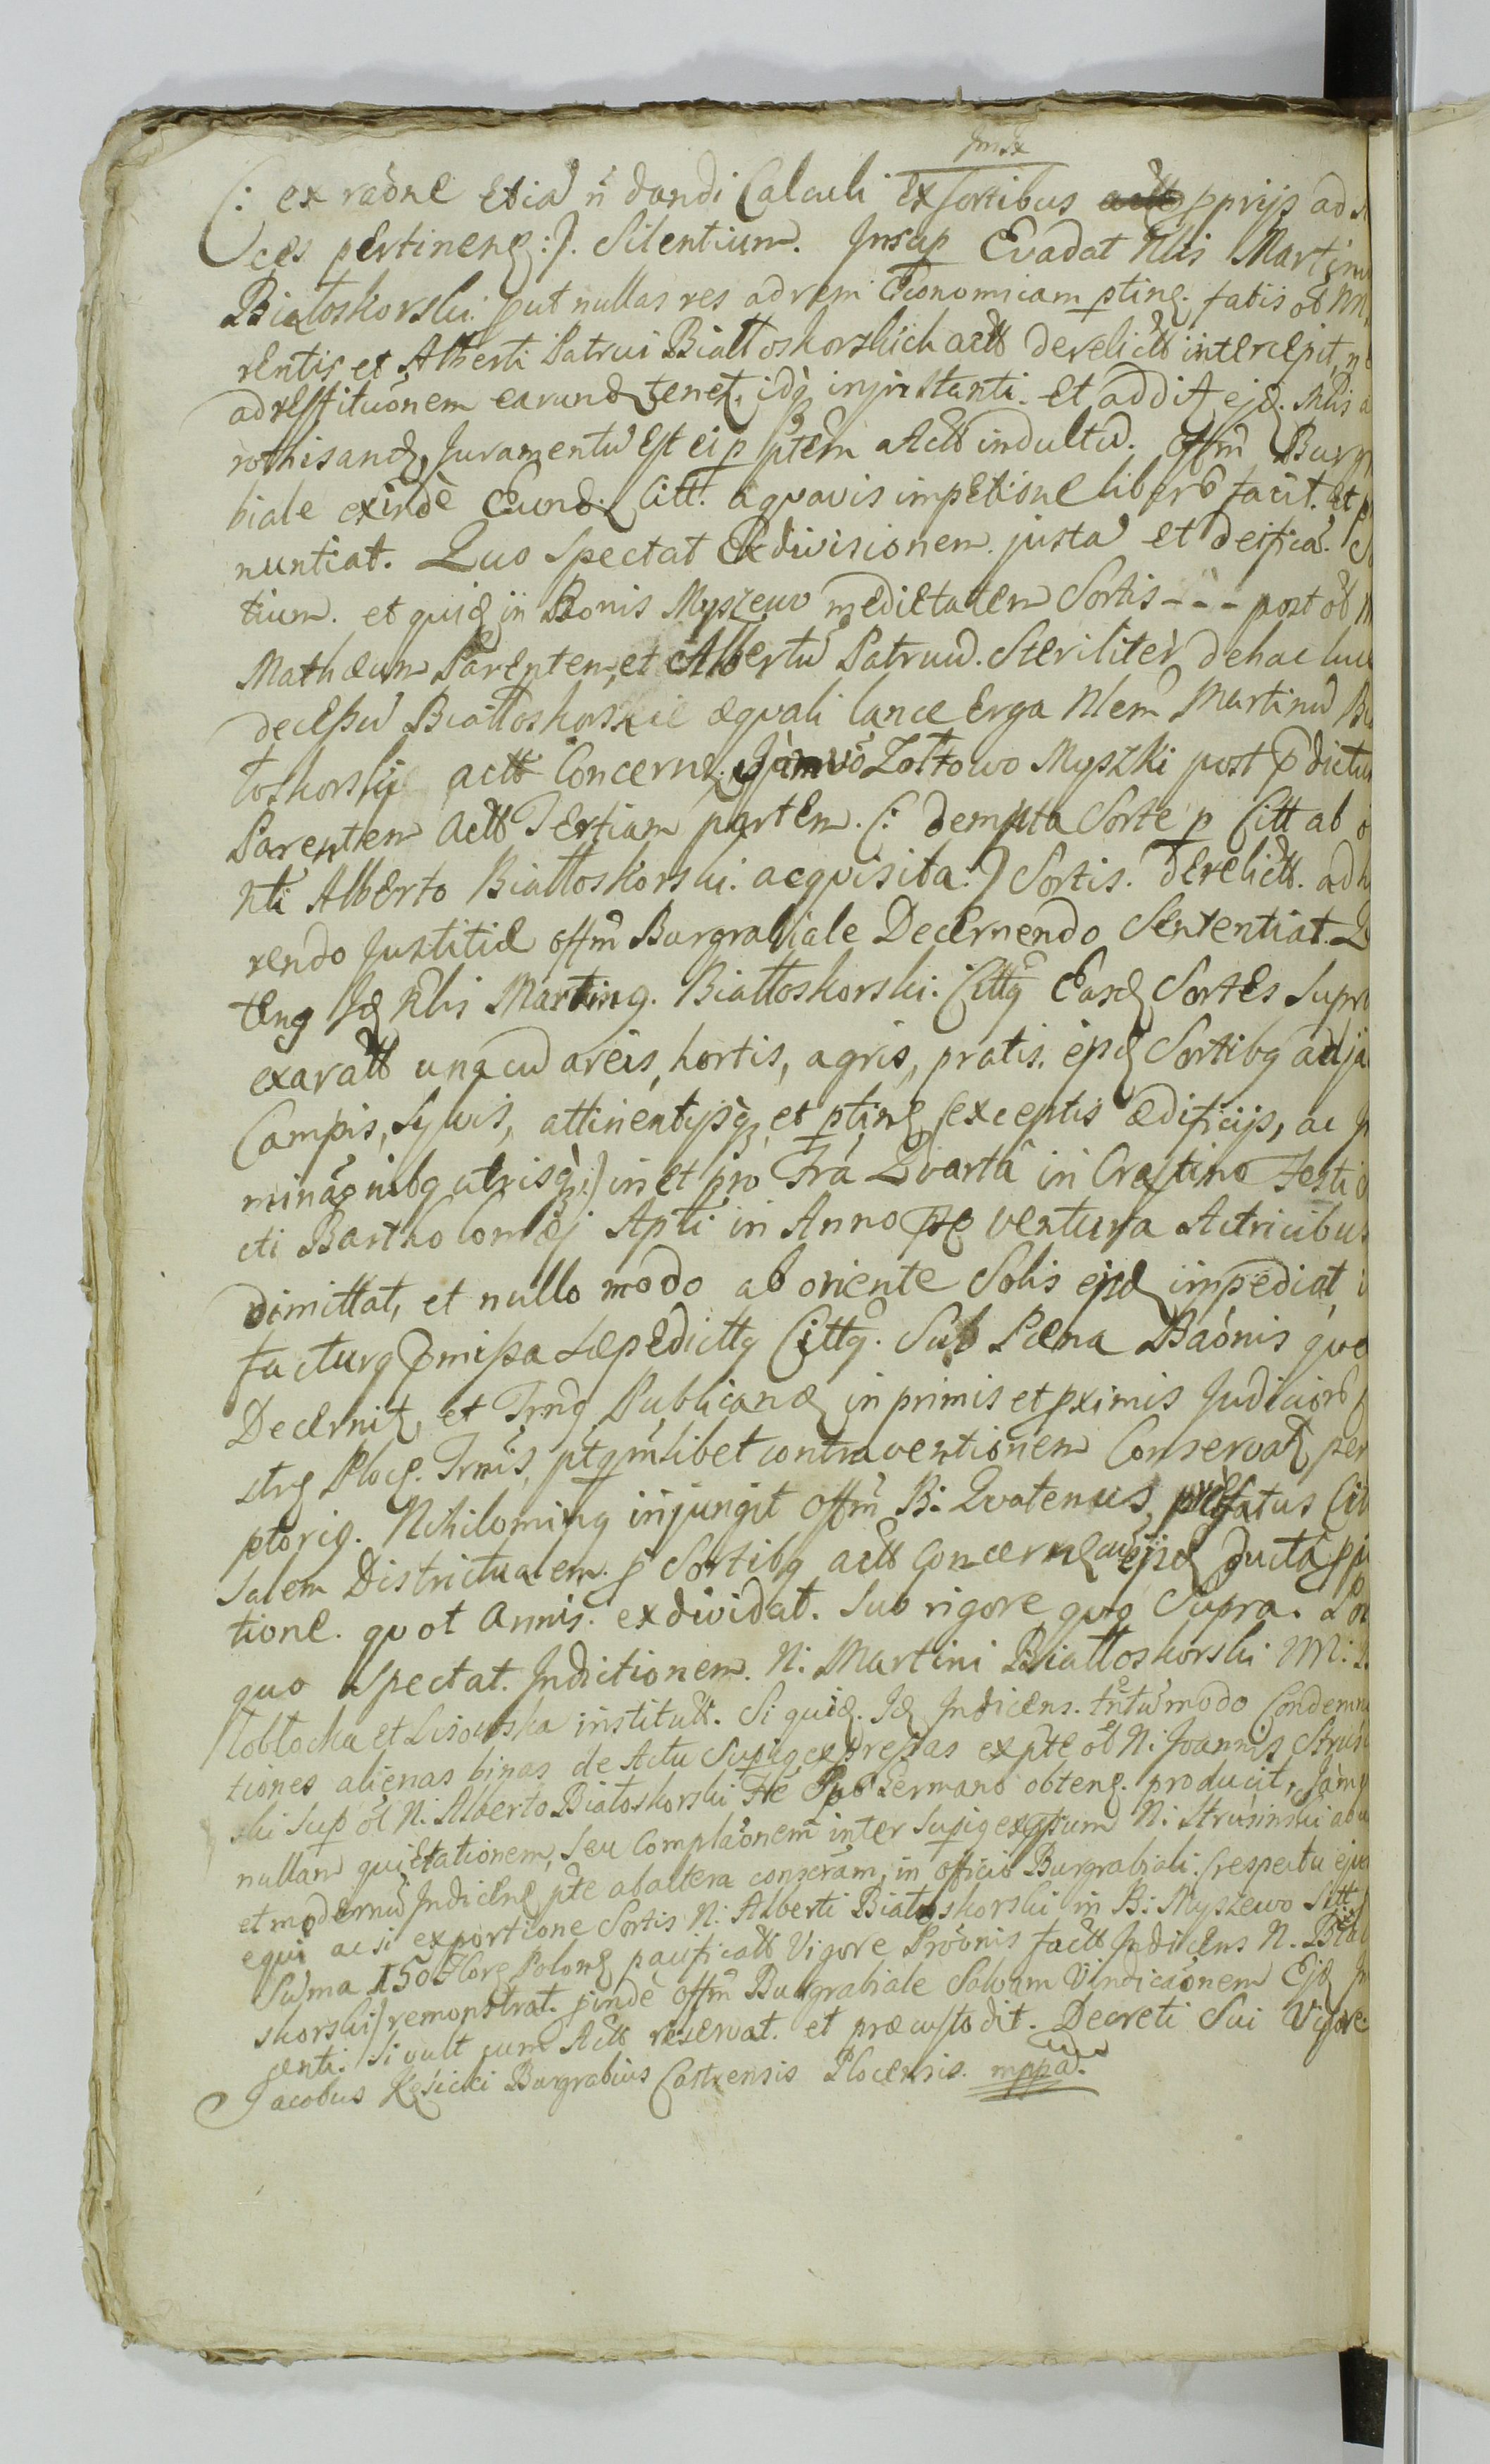 (: ex raõne etia n dandi Calculi ex sortibus pprijs ad
ces pertinen :). Silentium. Insup Evadat Nlis Martin
Białoskorski. put nullas res ad rem Œconomicam ptin. fatis ol M
rentis et Alberti Patrui Białłoskorskich actt derelictt intercepit, n
ad restitutionem earund tenet, idq injurstanti. et addit ejd. Nlis
rothisand, Juramentu est ei p ptem Actt indultu. Offm Burgr
biale exinde Eund. Citt. a qvavis impetione liberu facit. et p
nuntiat. Quo spectat Exdivisionem. justa et deifica.
tium. et quid in Bonis Myszewo medietatem Sortis - - - post ol
Mathæum Parentem, et Albertu Patruu. Steriliter de hac luce
decessu Białłoskorskie æqvali lance Erga Nlem Martinu Bia
łoskorskie actt Concern. Jam vo Zołtowo Myszki post pdictu
Parentem Actt Tertiam partem. (: dempta Sorte p Citt ab
Nli Alberto Białłoskorski. acqvisita :) Sortis. derelictt. ad h
rendo Justitiæ offm Burgrabiale Decernendo Sententiat. Q
teng Id Nlis Marting. Białłoskorski. Cittg Easd Sortes Supra
exaratt una cu areis, hortis, agris, pratis. ejsd Sortibg adja
Campis, Sylvis, attinentijsq, et ptin (exceptis ædificijs, ac
utrisq :) in et pro Fra Qvarta in Crastino Festi
cti Bartholomæj Apli in Anno ventura Actricibus
dimittat, et nullo modo ab oriente Solis ejsd impediat
facturg pmissa sæpedicttg Cittg. Sub Pæna Baõnis qva
Decernit, et Trmg Publicand in primis et pximis Judiciorb
strg Ploc. Trmis, ptqmlibet contraventionem Conservat, per
ptorig. Nihiloming injungit Offm B: Qvatenus, præfatus Cit
salem Districtualem. p Sortibg actt Concern ejsd ducta p
tione. qvot Annis. exdividat. Sub rigore quo Supra.
quo spectat. Indictionem. N: Martini Białłoskorski M:
Kobłocka et Lisowska institutt. Si quid. Id Indicens. tntumodo Condemna
tiones alienas binas de Actu Supig expressas ex pte ol N: Joannis Strusi
ski Sup ol N: Alberto Białoskorski Fre Germano obten. producit, Jamq
nullam quietationem, seu Complaõnem inter Supig exptum N: Strusinski ab
et modernu Indicen pte ab altera conseram, in officio Burgrabiali. (respectu ejus
equi ac si ex portione Sortis N: Alberti Białłoskorski in B: Myszewo Sitt
Suma 150 Flor Polon pacificatt Vigore Proõnis factt Indicens N. Biał
skorski) remonstrat. pinde offm Burgrabiale Salvam Vindicaõnem Ejd
centi. Si vult cum Actt reservat. et præcustodit. Decreti Sui Vigore.
Jacobus Kęsicki Burgrabius Castrensis Plocensis. mppa.